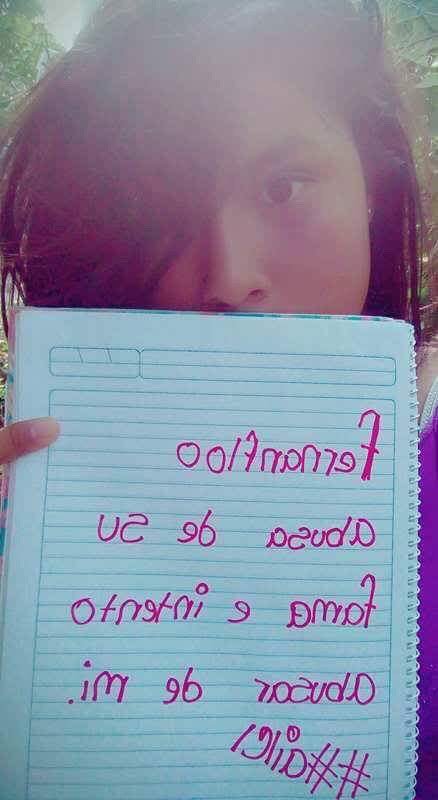 Fernanfloo
abusa de su
fama e intento
abusar de mi.